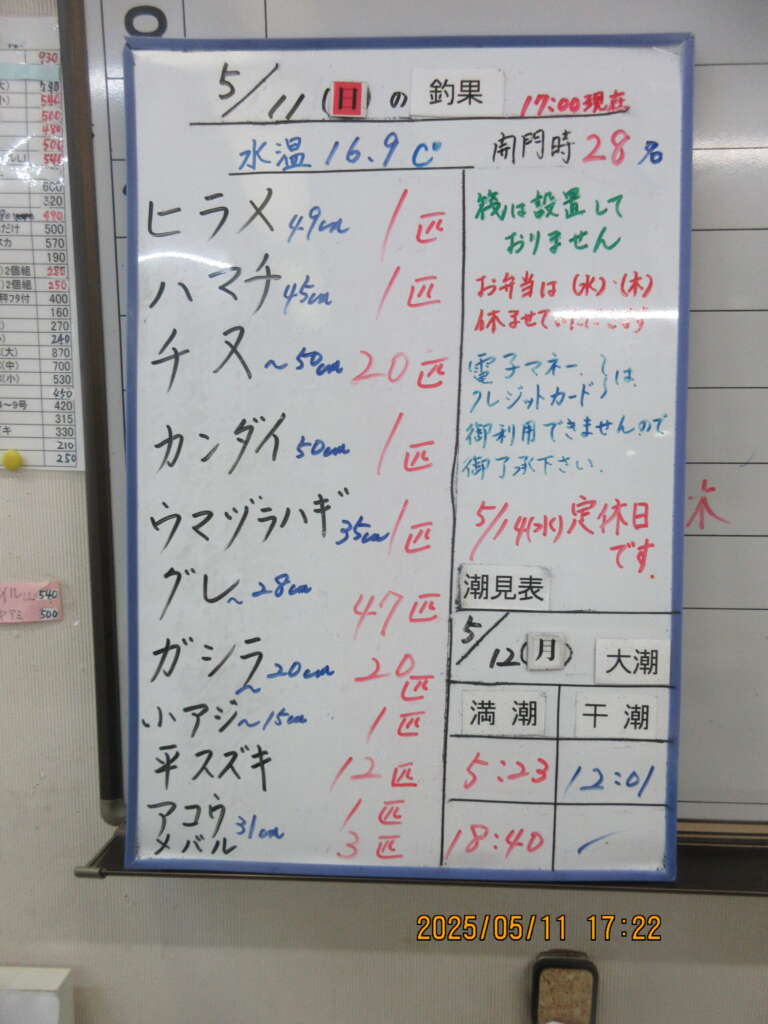 5/11(日)の釣果 17:00現在
水温16.9C° 開門時28名
ヒラメ49cm 1匹
ハマチ45cm 1匹
チヌ~50cm 20匹
カンダイ50cm 1匹
ウマヅラハギ35cm 1匹
グレ~28cm 47匹
ガシラ~20cm 20匹
小アジ~15cm 1匹
平スズキ 12匹
アコウ31cm 1匹
メバル 3匹
筏は設置して
おりません
お弁当は(水)・(木)
休ませていただきます
電子マネー、
クレジットカード は、
御利用できませんので
御了承下さい.
5/14(水)定休日
です.
潮見表
5/12(月) 大潮
満潮 干潮
5:23 12:01
18:40
木
930
540
500
480
500
540
600
320
490
だけ 500
スカ 570
190
)2個組 280
)2個組 250
400
160
270
240
(大) 870
(中) 700
(小) 530
450
4~9号 420
315
キ 330
210
250
540
500
2025/05/11 17:22